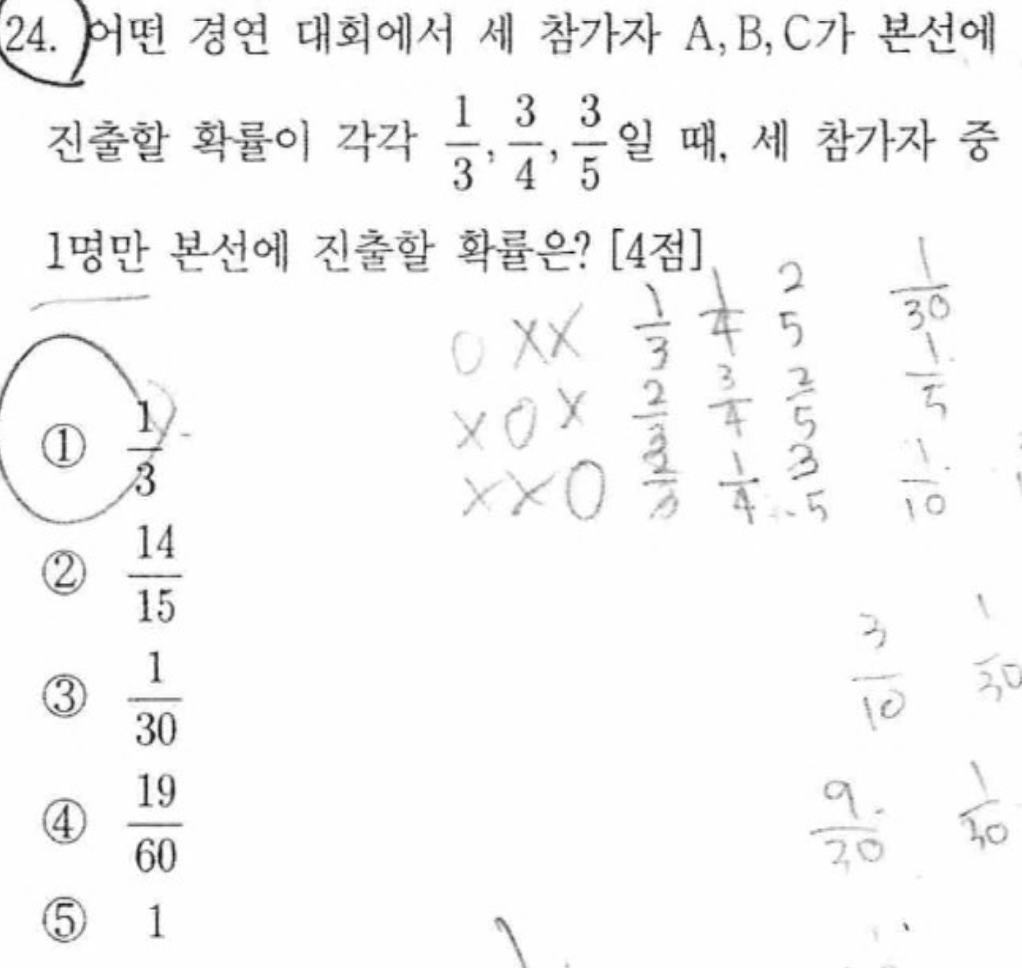 24. 어떤 경연 대회에서 세 참가자 A, B, C가 본선에
진출할 확률이 각각 1/3, 3/4, 3/5 일 때, 세 참가자 중
1명만 본선에 진출할 확률은? [4점]
O X X 1/3 1/4 2/5 1/30
X O X 2/3 3/4 2/5 1/5
X X O 2/3 1/4 3/5 1/10
① 1/3
② 14/15
③ 1/30
3/10 1/30
④ 19/60
9/30 1/30
⑤ 1